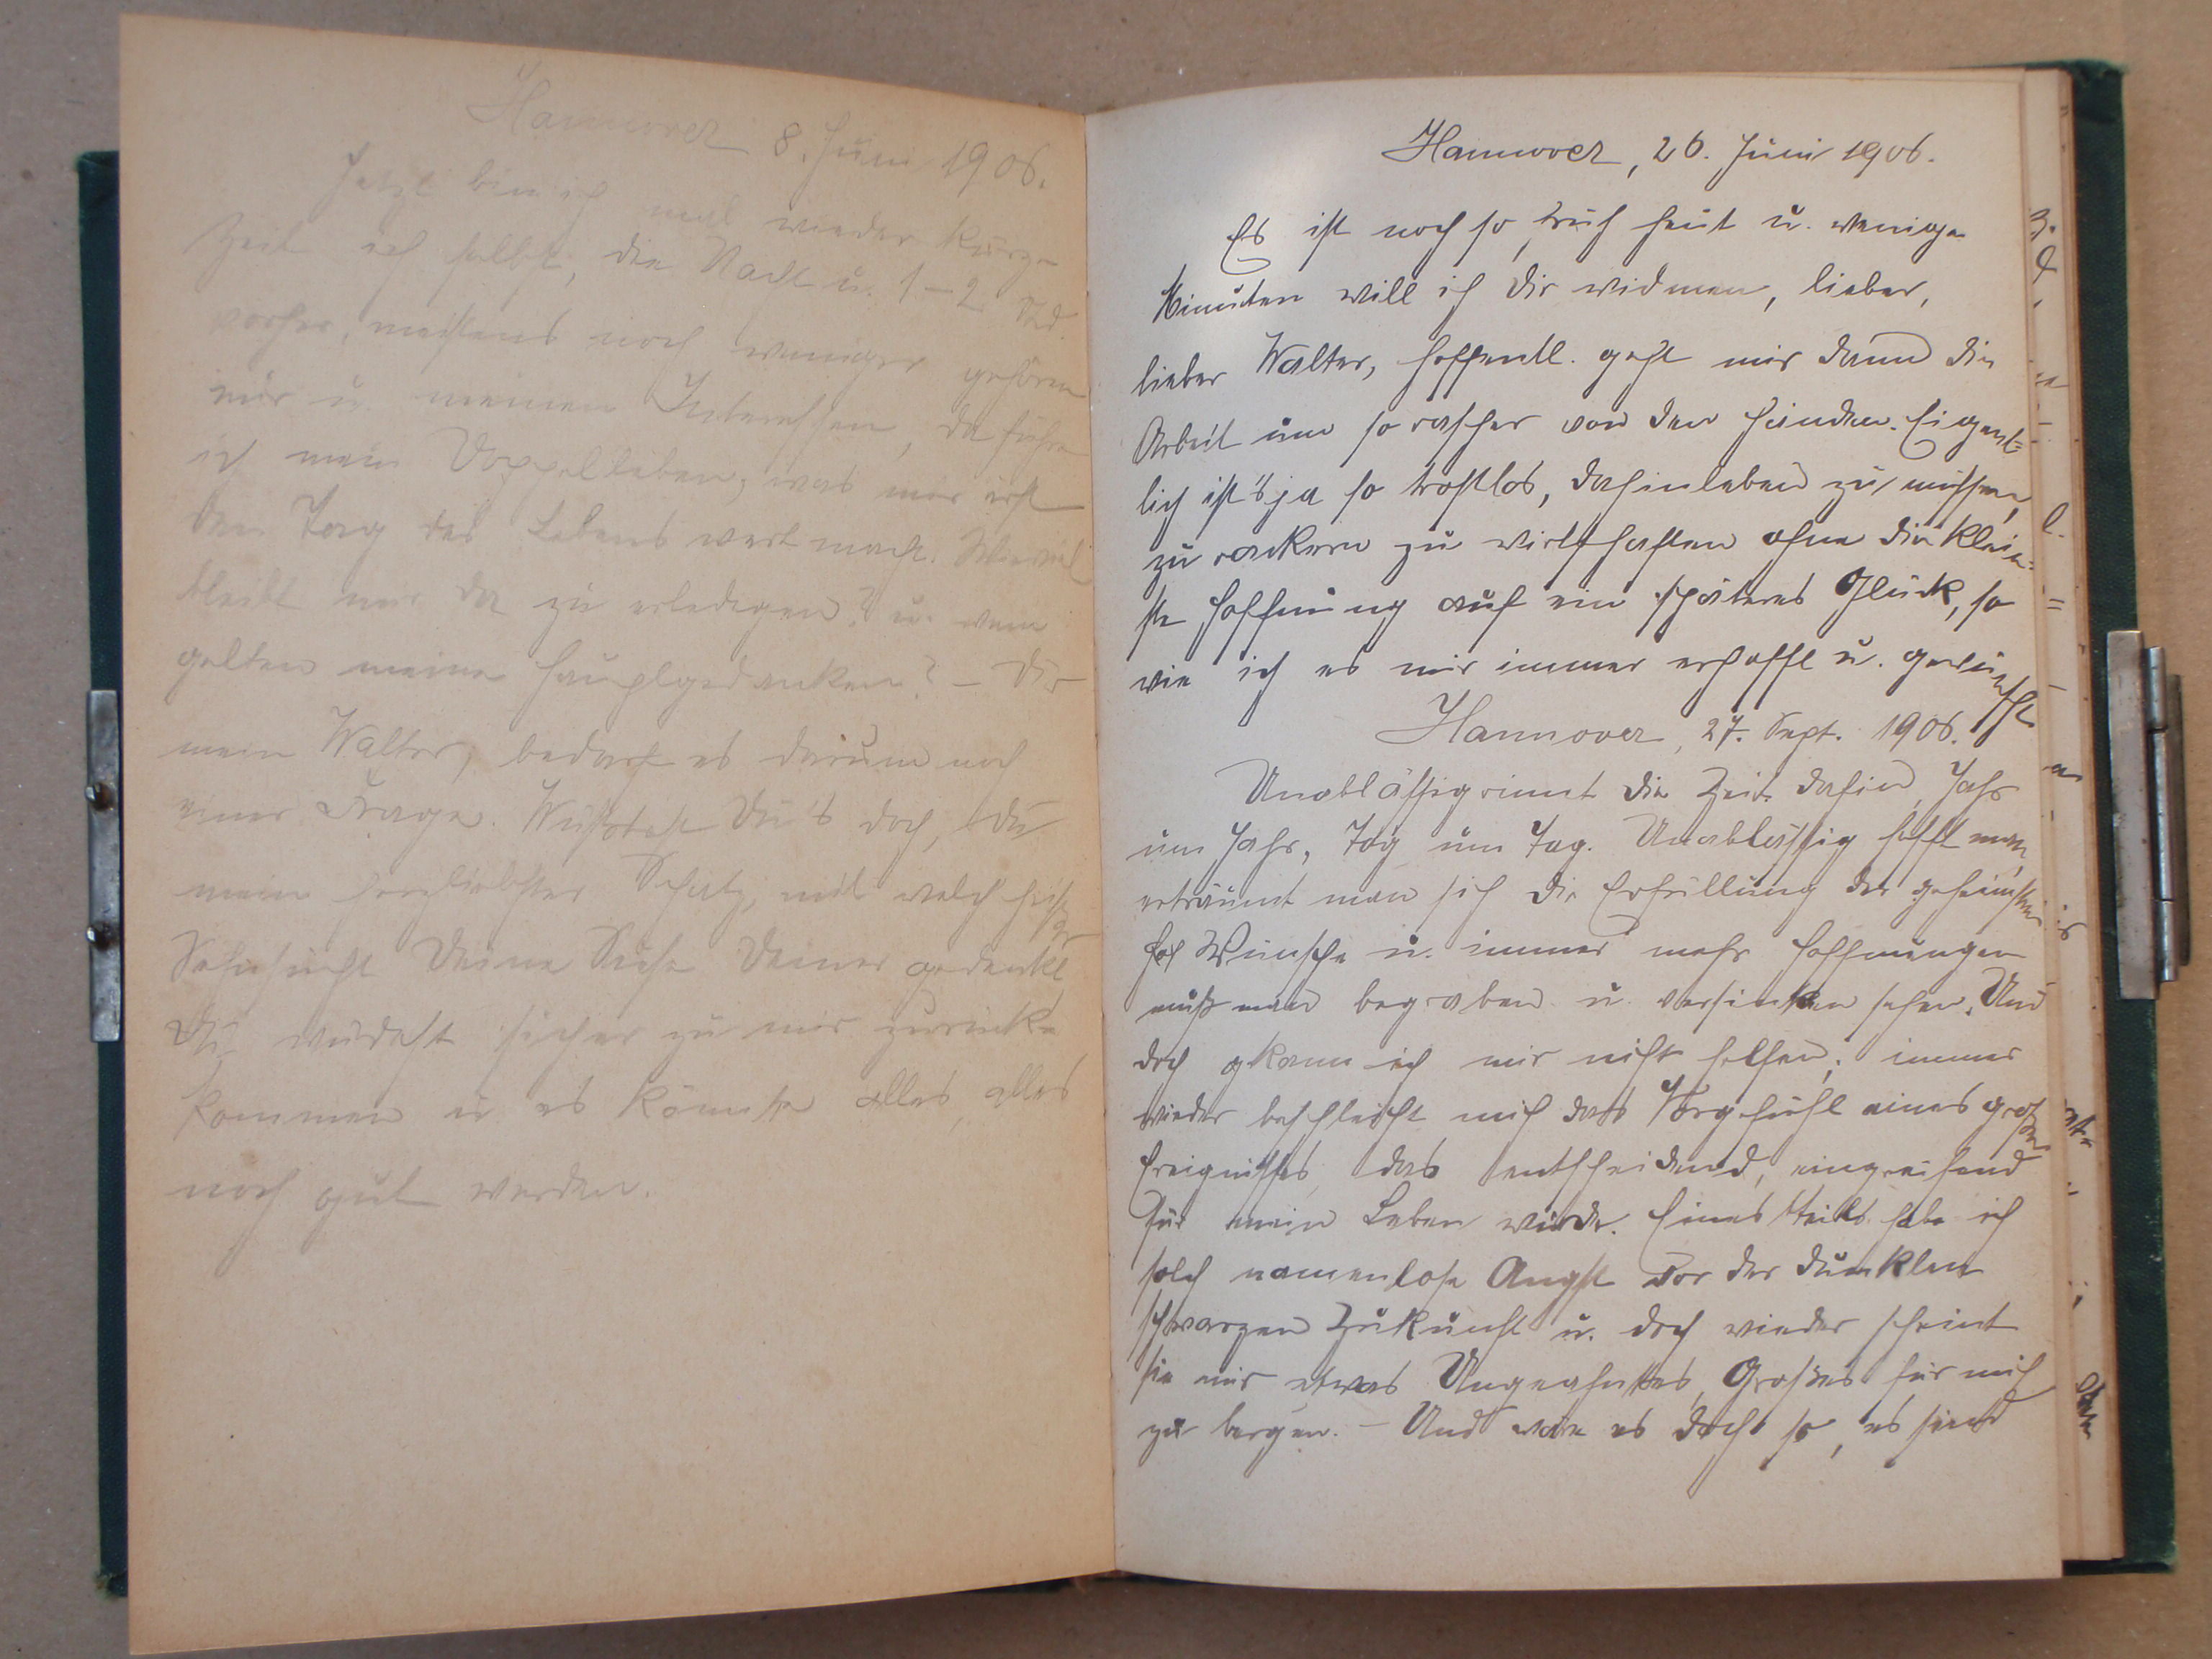 Hannover 8. Juni 1906.
Jetzt bin ich mal wieder kurze
Zeit ich selbst, die Nacht u. 1–2 Std
vorher, meistens noch weniger gehören
mir u. meinen Interessen, da führe
ich mein Doppelleben, was mir erst
den Tag des Lebens wert macht. Wieviel
bleibt mir da zu erledigen? u. wem
gelten meine Hauptgedanken? – Dir
mein Walter, bedarf es darum noch
einer Frage. Wüßtest Du's doch, Du
mein herzliebster Schatz, mit welch heißer
Sehnsucht Deine Deiner gedenkt
Du würdest sicher zu mir zurück
kommen u. es könnte alles, alles
noch gut werden.
Hannover, 26. Juni 1906.
Es ist noch so früh heut u. wenige
Minuten will ich Dir widmen, lieber,
lieber Walter, hoffentl. geht mir dann die
Arbeit um so rascher von den Händen. Eigent=
lich ist's ja so trostlos, dahinleben zu müssen,
zu rackern zu wirtschaften ohne die klein=
ste Hoffnung auf ein späteres Glück, so
wie ich es mir immer erhofft u. gewünscht
Hannover, 27. Sept. 1906.
Unablässig rinnt die Zeit dahin, Jahr
um Jahr, Tag um Tag. Unablässig hofft man,
erträumt man sich die Erfüllung der geheimsten
Wünsche u. immer mehr Hoffnungen
muß man begraben u. versinken sehen. Und
doch kann ich mir nicht helfen; immer
wieder beschleicht mich das Vorgefühl eines großen
Ereignisses, das entscheidend, eingreifend
für mein Leben würde. Einesteils habe ich
solch namenlose Angst vor der dunklen
schwarzen Zukunft u. doch wieder scheint
sie mir etwas Ungeahntes, Großes für mich
zu bergen. – Und wäre es doch so, es